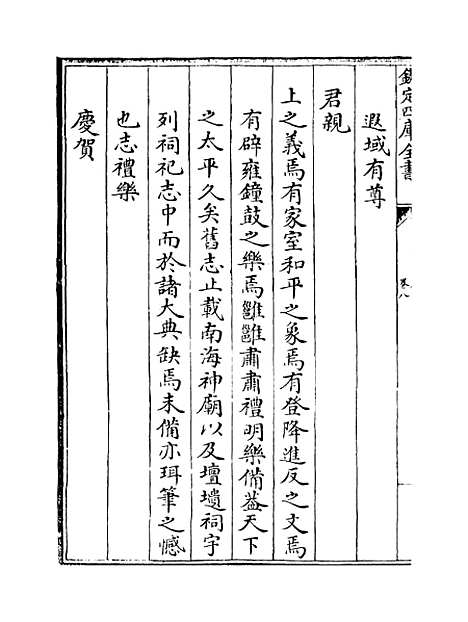 欽定四庫全書
卷八
遐域有尊
君親
上之義焉有家室和平之象焉有登降進反之文焉
有辟雍鐘鼓之樂焉雝雝肅肅禮明樂備葢天下
之太平久矣舊志止載南海神廟以及壇壝祠宇
列祠祀志中而於諸大典缺焉未備亦珥筆之憾
也志禮樂
慶賀